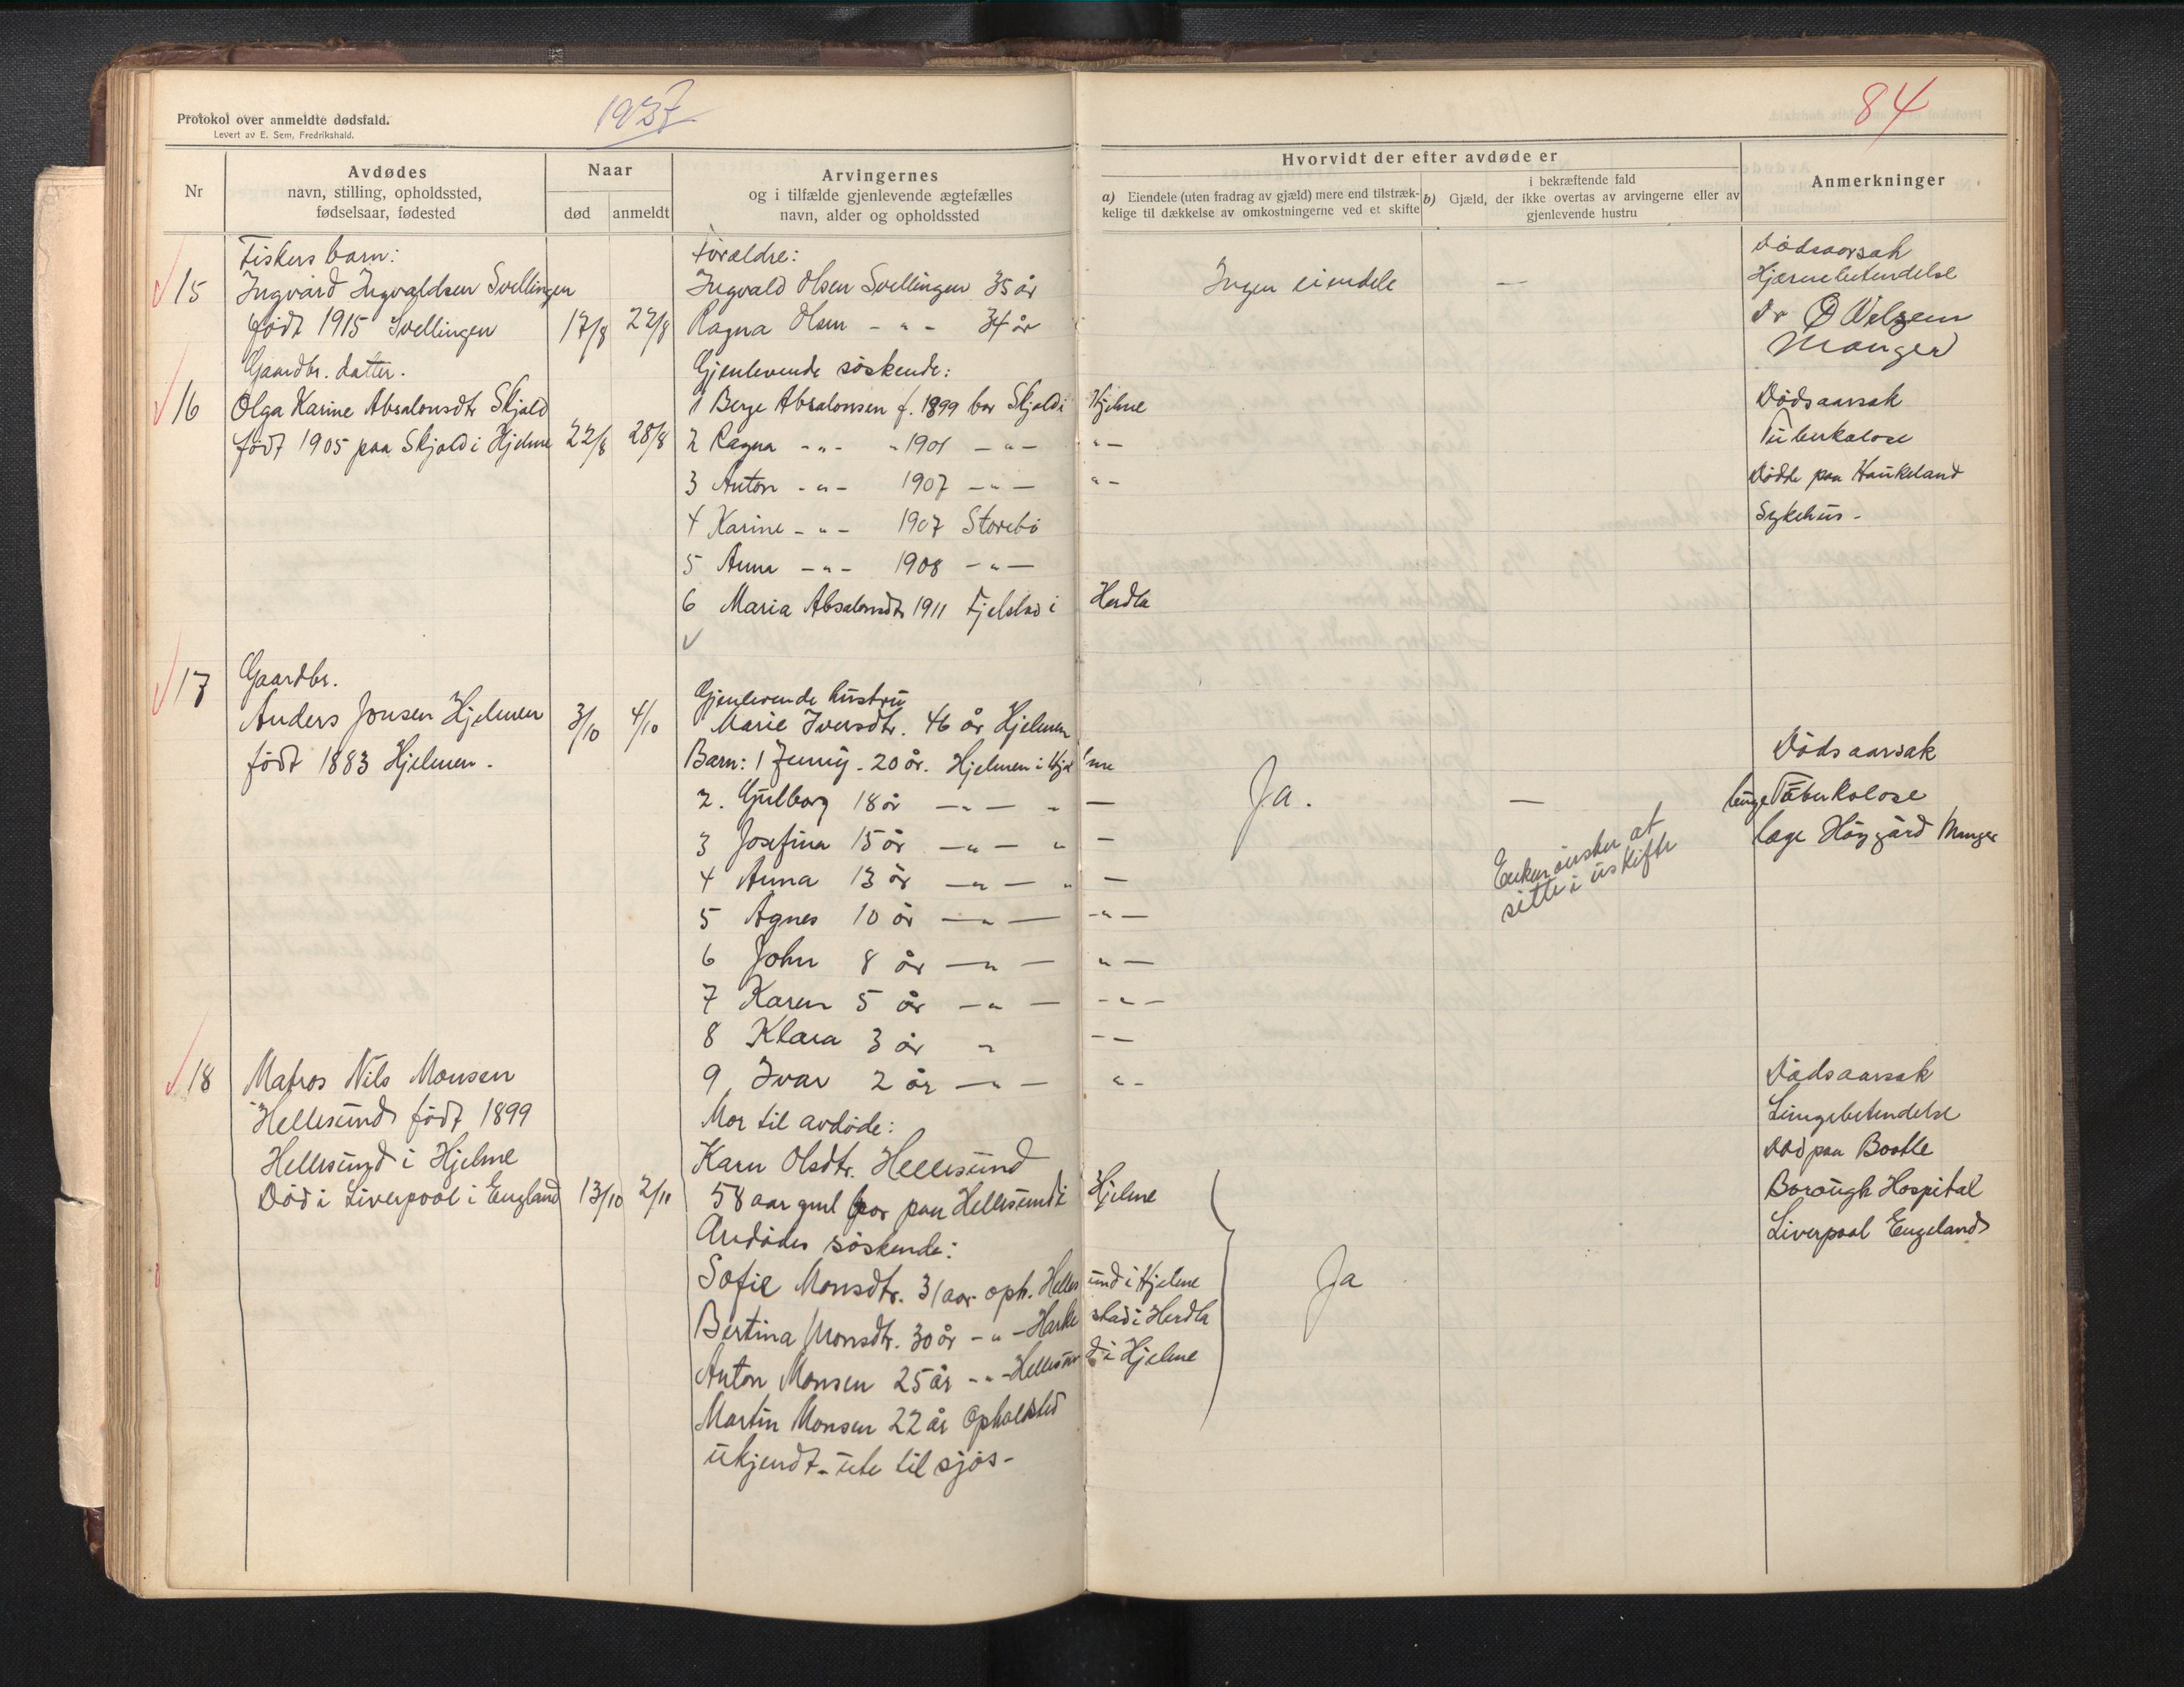 Protokol over anmeldte dødsfald.
Levert av E. Sem, Fredrikshald.
1927
84
Nr
Avdødes
navn, stilling, opholdssted,
fødselsaar, fødested
Naar
død
anmeldt
Arvingernes
og i tilfælde gjenlevende ægtefælles
navn, alder og opholdssted
Hvorvidt der efter avdøde er
a) Eiendele (uten fradrag av gjæld) mere end tilstræk-
kelige til dækkelse av omkostningerne ved et skifte
b) i bekræftende fald
Gjæld, der ikke overtas av arvingerne eller av
gjenlevende hustru
Anmerkninger
Fiskers barn:
15 Ingvard Ingvaldsen Svellingen
født 1915 Svellingen 17/8 22/8
Foreldre:
Ingvald Olsen Svellingen 35 år
Ragna Olsen - " - 34 år
Ingen eiendele —
Dødsaarsak
Hjernebetendelse
Dr
Manger
Gaardbr. datter.
16 Olga Karine Absalonsdtr Skjold
født 1905 paa Skjold i Hjelme 22/8 28/8
Gjenlevende søskende:
1 Berge Absalonsen f. 1899 bor Skjold i Hjelme
2 Ragna - " - " 1901 - " - " -
3 Anton - " - 1907 - " - " -
4 Karine - " - 1907 Storebø
5 Anna - " - 1908 - " -
6 Maria Absalonsdtr 1911 Fjelstad i Herdla
Dødsaarsak
Tuberkolose
Død paa Haukeland
Sykehus -
17 Gaardbr.
Anders Jonsen Hjelmen 3/10 4/10
født 1883 Hjelmen -
Gjenlevende hustru
Marie Iversdtr. 46 år Hjelmen
Barn: 1 Jenny - 20 år. Hjelmen i Hjelme
2. Gulborg 18 år — " — " —
3 Josefina 15 år — " — " —
4 Anna 13 år — " — " —
5 Agnes 10 år — " — - " —
6 John 8 år — " — " —
7 Karen 5 år — " — - " —
8 Klara 3 år " - —
9, Ivar 2 år — " — " -
Ja. —
Enken ønsker at
sitte i uskifte
Dødsaarsak
lunge Tuberkolose
læge Høygård Manger
18 Matros Nils Monsen
Hellesund født 1899
Hellesund i Hjelme
Død i Liverpool i England 13/10 2/11
Mor til avdøde:
Karen Olsdtr. Hellesund
58 aar gml bor paa Hellesund i Hjelme
Avdødes søskende:
Sofie Monsdtr. 31 aar oph. Hellesund i Hjelme
Bertina Monsdtr. 30 år - " - Harkestad i Herdla
Anton Monsen 25 år - " - Hellesund i Hjelme
Martin Monsen 22 år Opholdsted
ukjendt - ute til sjøs -
Ja
Dødsaarsak
Lungebetendelse
Død paa Bootle
Borough Hospital
Liverpool Engeland